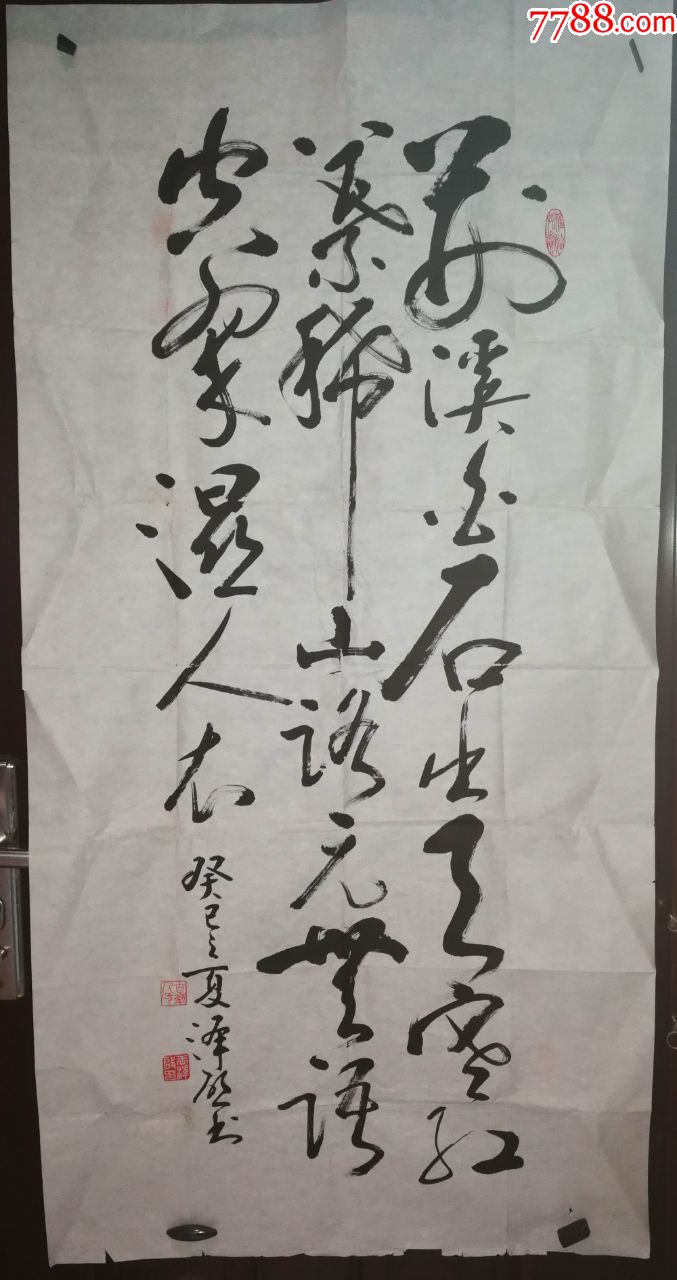 7788.com
荆溪白石出天寒红
葉稀山路元無語
空翠濕人衣
癸巳之夏泽啟书